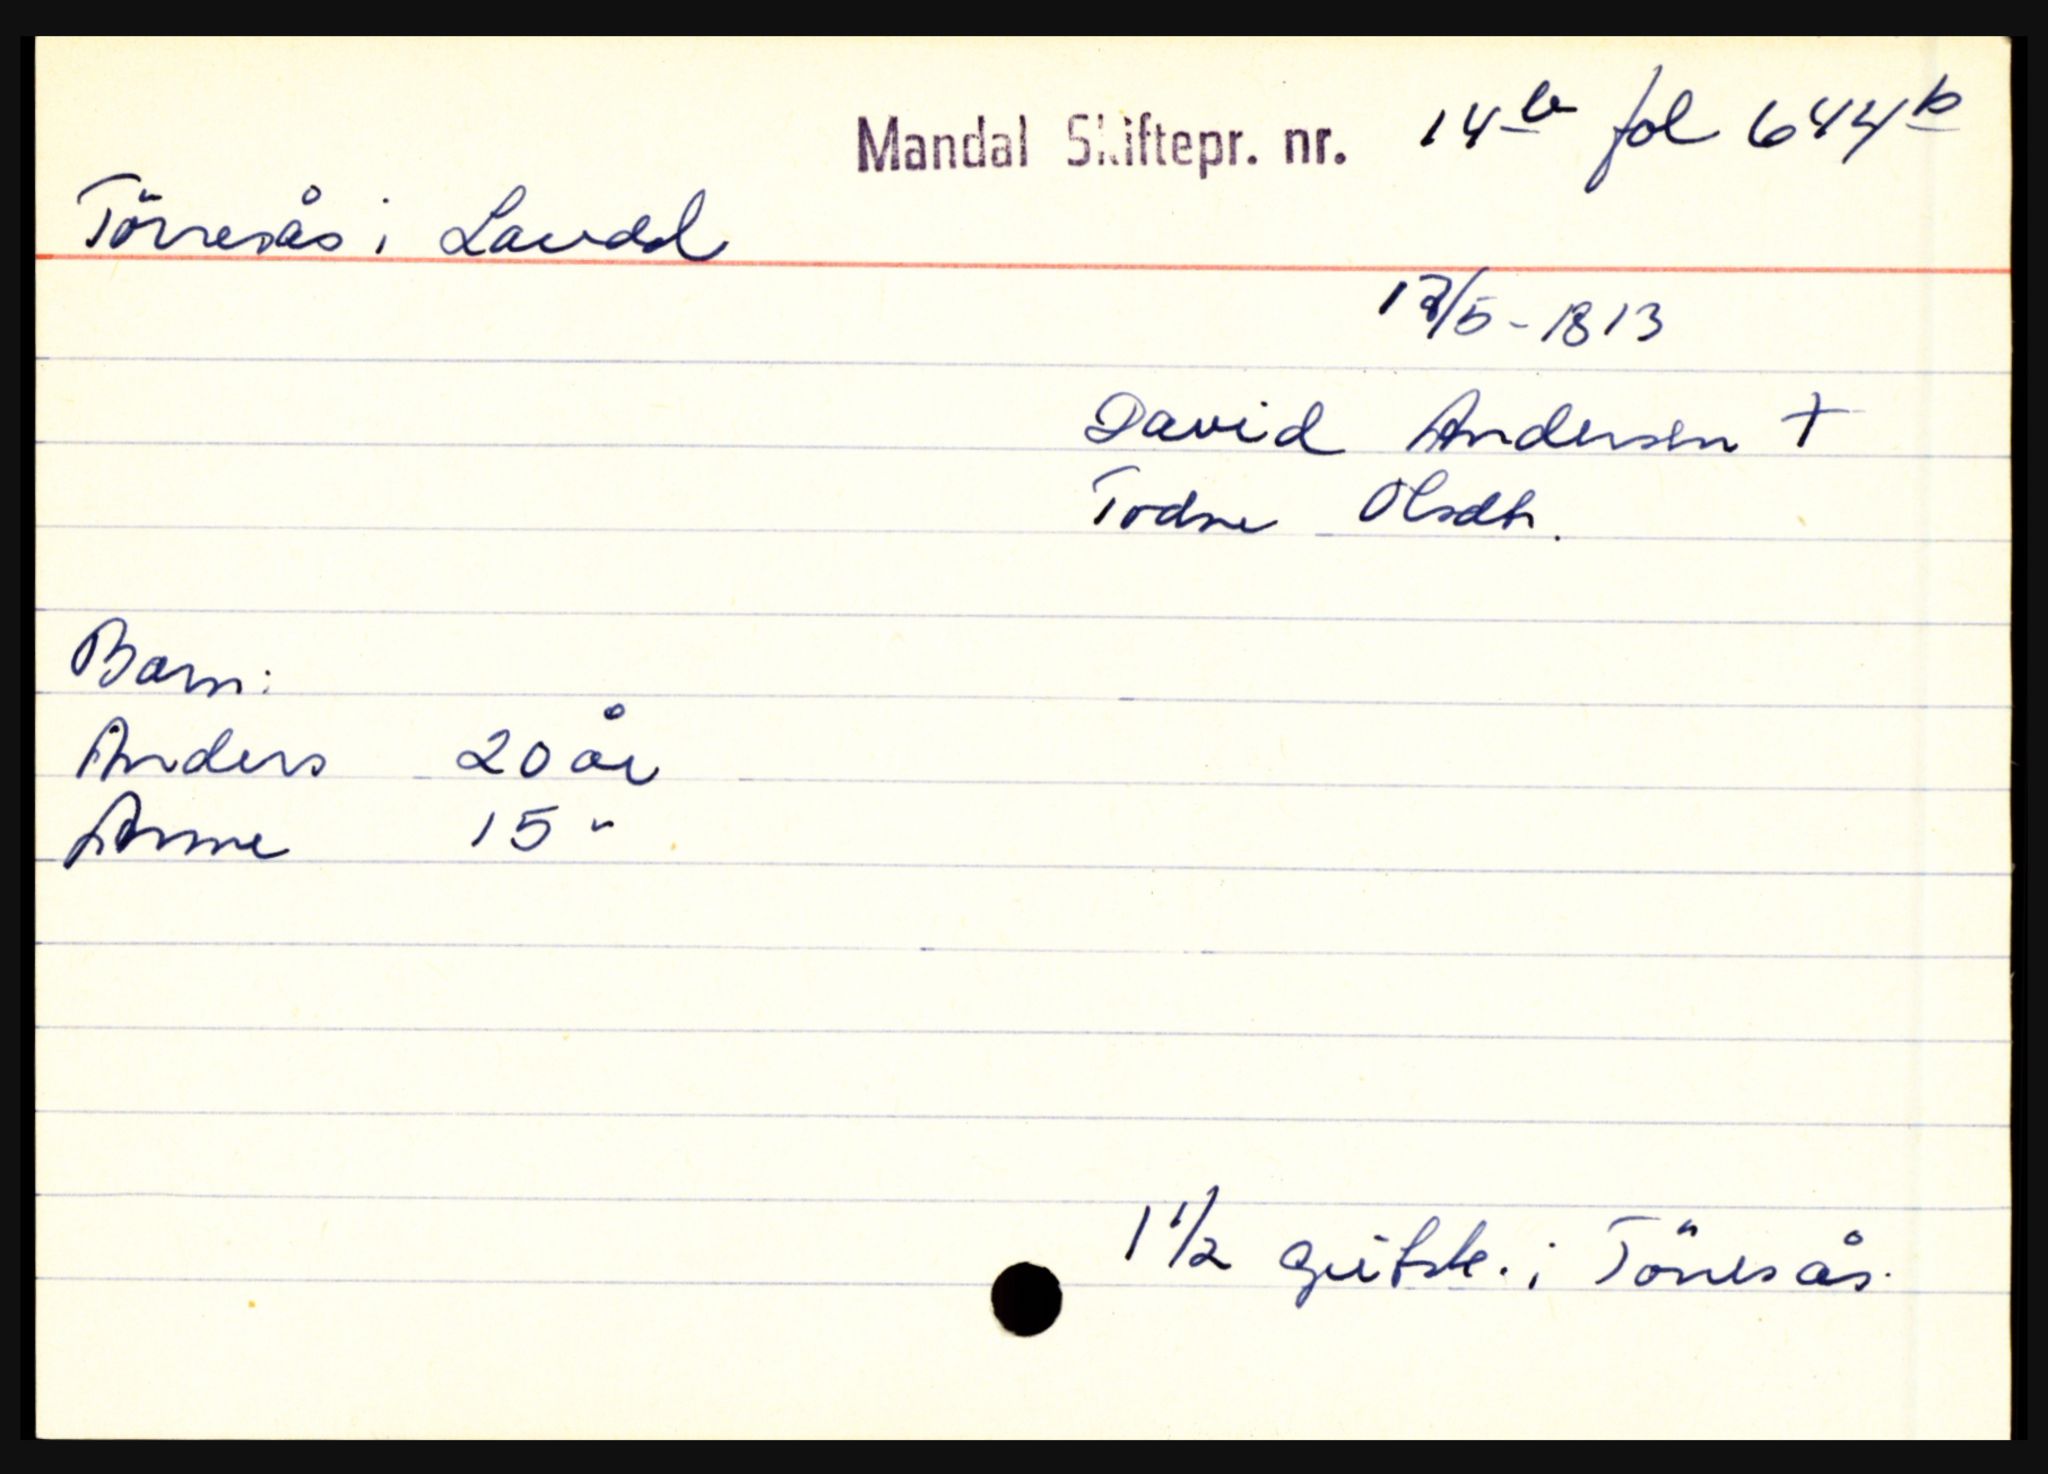 Mandal Skiftepr. nr. 14b fol 644b
Törresås i Laudal
/5-1813
David Andersen +
Todne Olsdtr.
Barn:
Anders 20 år
Anne 15 "
1 1/2 gütsk. i Törresås.